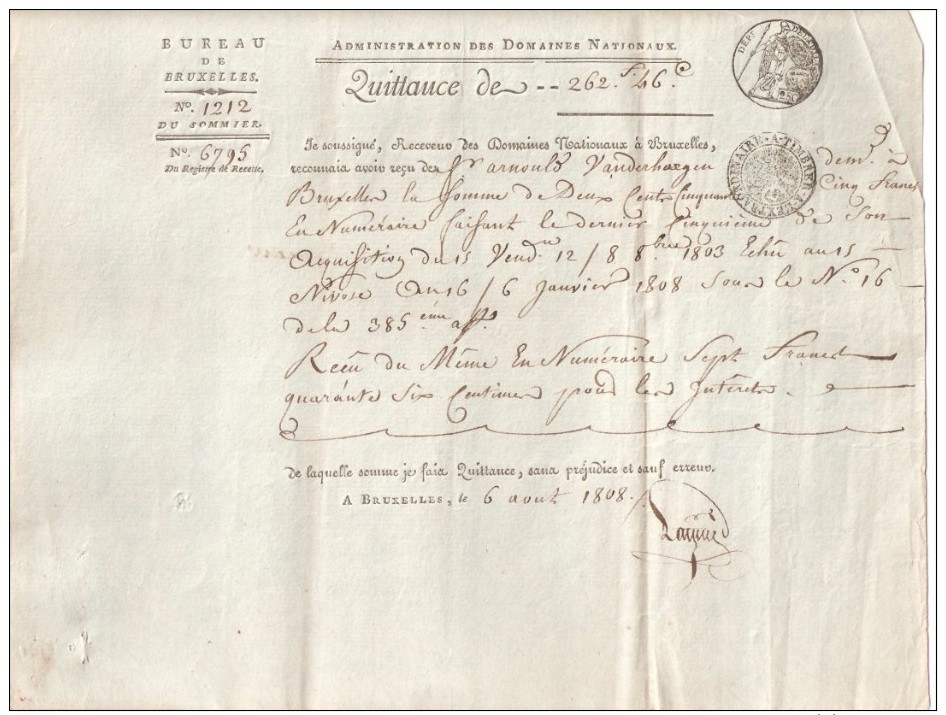 BUREAU
DE
BRUXELLES.
N.º 1212
DU SOMMIER.
N.º 6795
Du Registre de Recette.
ADMINISTRATION DES DOMAINES NATIONAUX.
Quittance de -- 262 f. 46 c.
Je soussigné, Receveur des Domaines Nationaux à Bruxelles,
reconnais avoir reçu de Sr arnould Vanderhaegen demt à
Bruxelles la Somme de Deux Cents Cinquante Cinq Francs
En Numéraire faisant le dernier Cinquième de Son
Acquisition du 15 Vendre 12 / 8 8bre 1803 Echu au 15
Nivose An 16 / 6 Janvier 1808 Sous le N.º 16
de la 385 ème aff.
Recu du Même En Numéraire Sept Francs
quarante Six Centimes pour les Intérêts.
de laquelle somme je fais Quittance, sans préjudice et sauf erreur.
A BRUXELLES, le 6 aout 1808.
EXTRAORDINAIRE · A · TIMBRER · A · L'